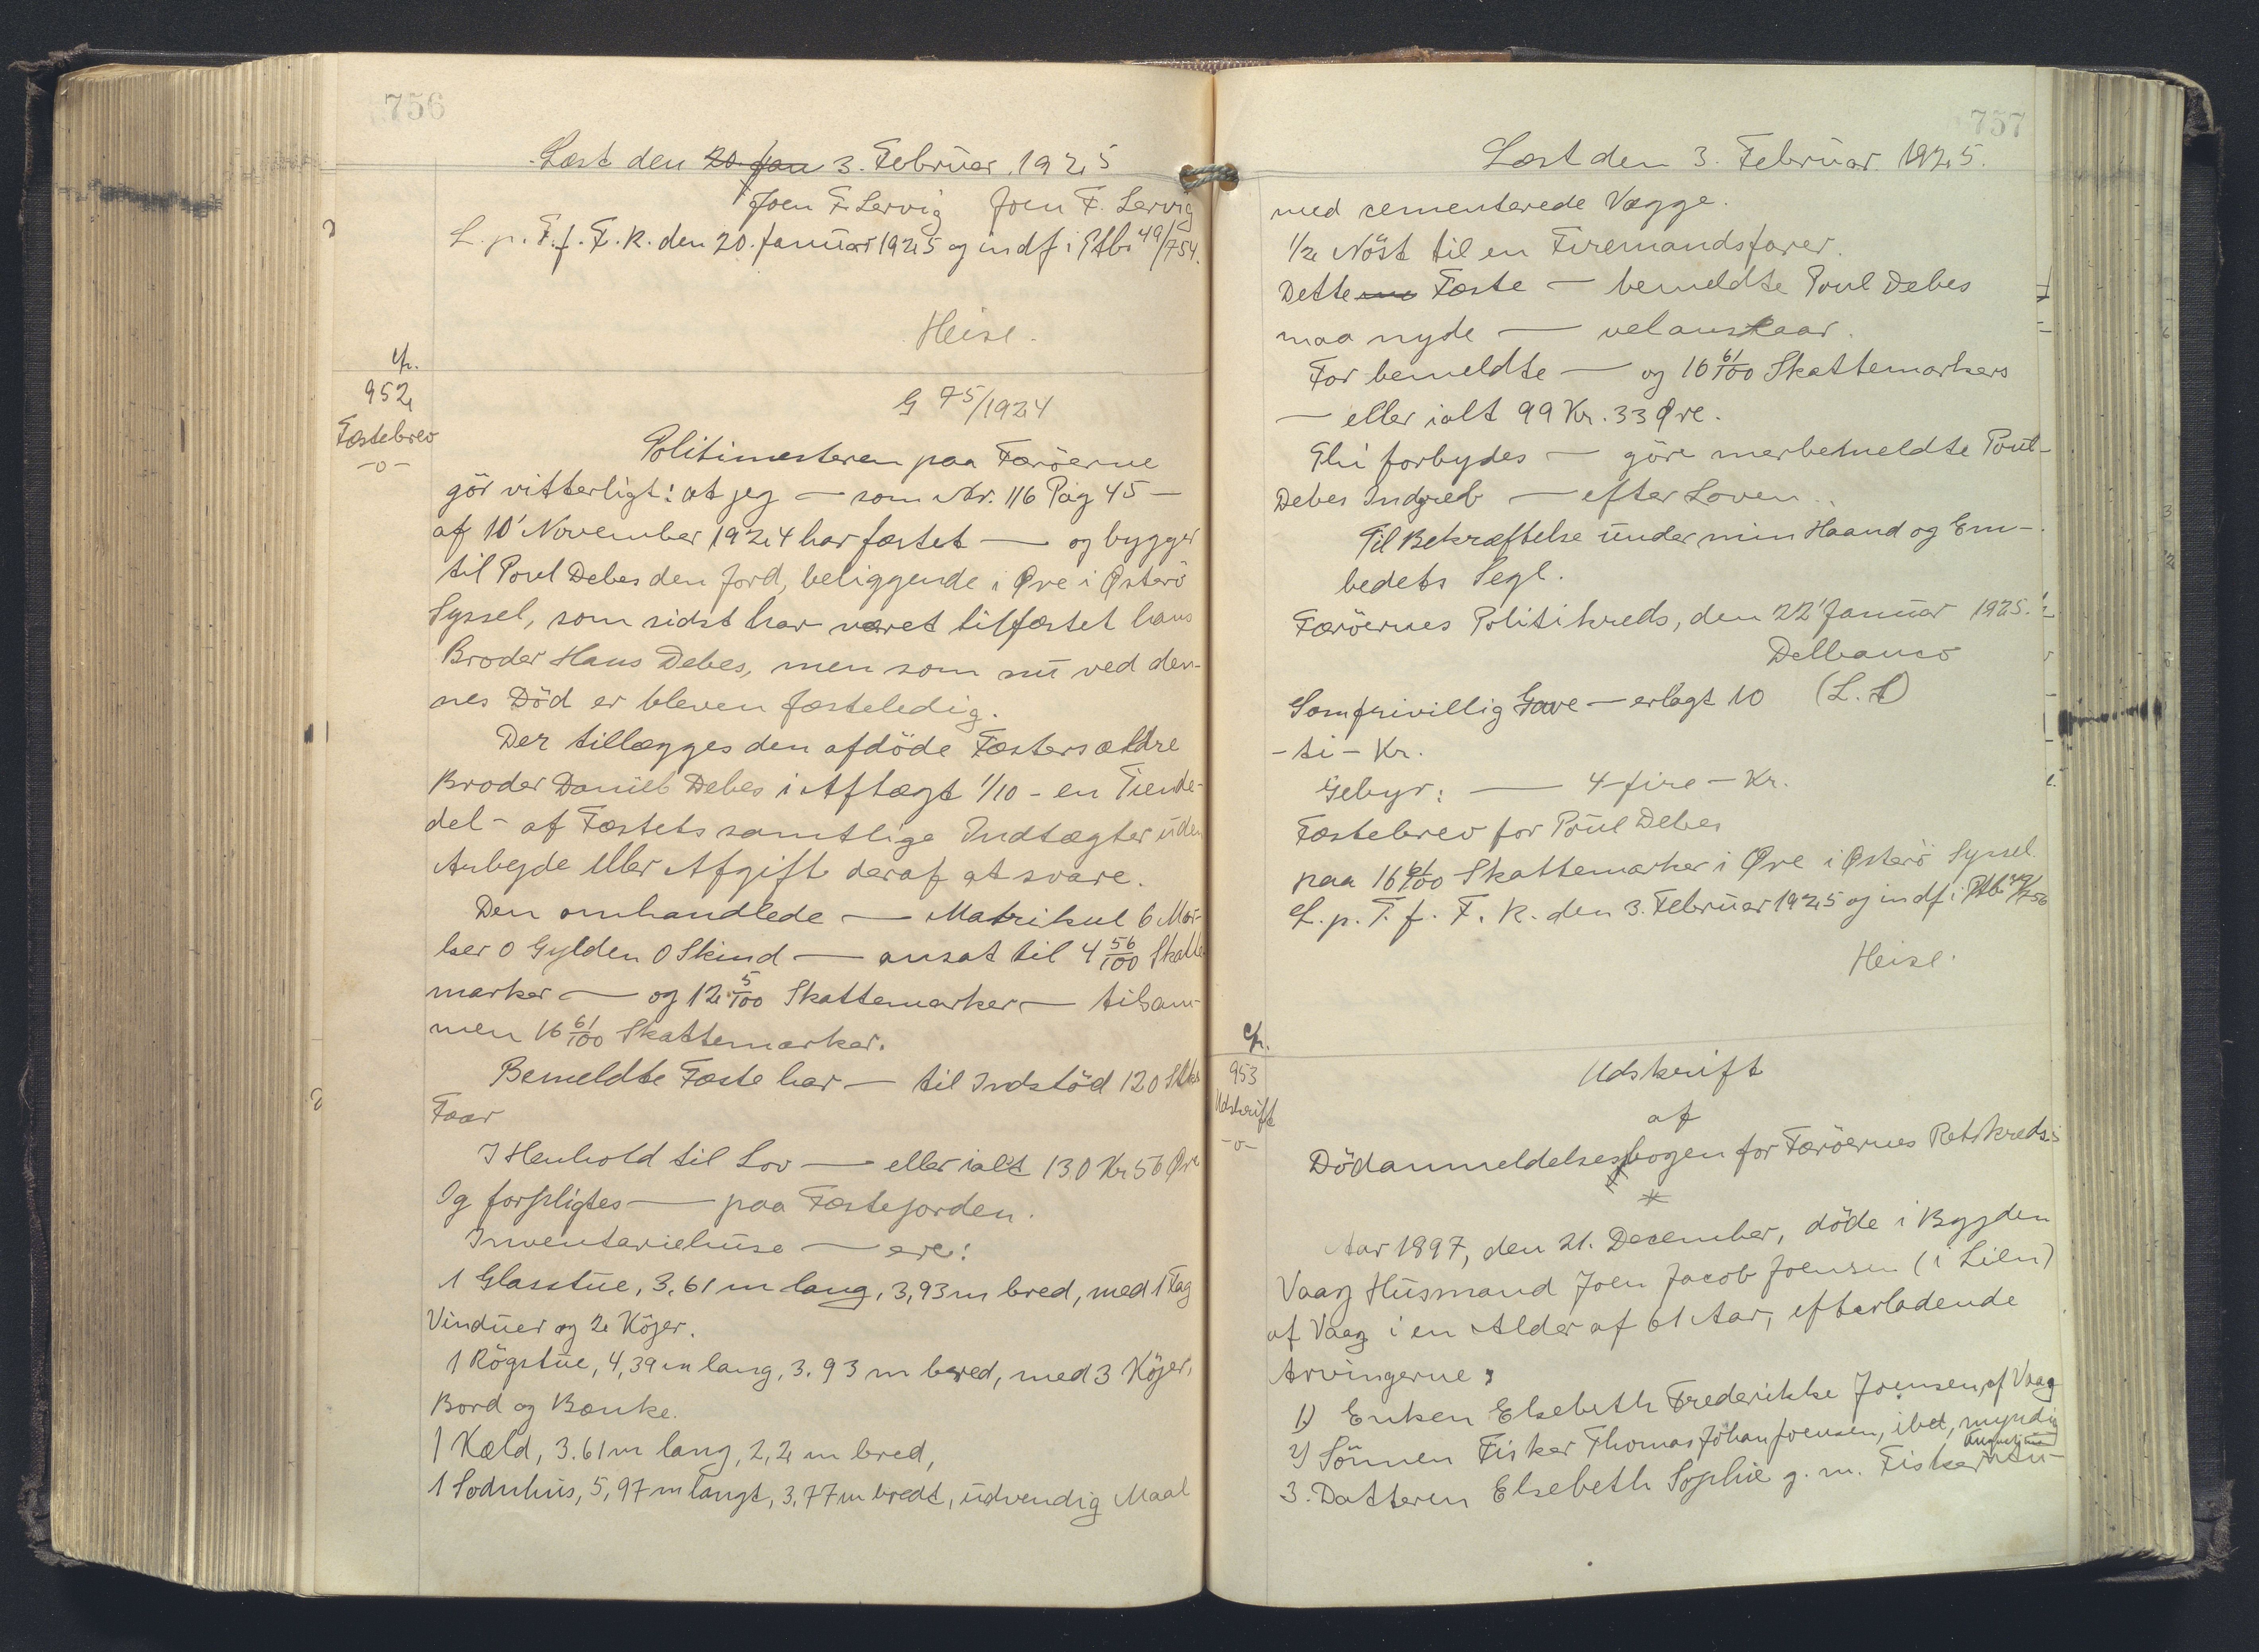 756
Læst den 20. Jan 3. Februar 1925
Joen F. Lervig Joen F. Lervig
L. p. T. f. F. R. den 20. Januar 1925 og indf i Ptb. 49/754.
Heise.
cfr.
952
Fæstebrev
-o-
G 75/1924
Politimesteren paa Færöerne
gör vitterligt: at jeg — som Nr. 116 Pag 45 —
af 10' November 1924 har fæstet — og bygger
til Poul Debes den Jord, beliggende i Øre i Østerö
Syssel, som sidst har været tilfæstet hans
Broder Hans Debes, men som nu ved den-
nes Död er bleven fæsteledig.
Der tillægges den afdöde Fæsters ældre
Broder Daniel Debes i Aftægt 1/10 - en Tiende-
del - af Fæstets samtlige Indtægter uden
Arbejde eller Afgift deraf at svare.
Den omhandlede — Matrikul 6 Mar-
ker 0 Gylden 0 Skind — ansat til 4 56/100 Skatte
marker — og 12 5/100 Skattemarker — tilsam-
men 16 61/100 Skattemarker.
Bemeldte Fæste har — til Indstöd 120 Stks
Faar
I Henhold til Lov — eller ialt 130 Kr 56 Øre
Og forpligtes — paa Fæstejorden.
Inventariehuse — ere:
1 Glasstue, 3,61 m lang, 3,93 m bred, med 1 Fag
Vinduer og 2 Köjer.
1 Rögstue, 4,39 m lang, 3.93 m bred, med 3 Köjer,
Bord og Bænke.
1 Kæld, 3.61 m lang, 2,2 m bred,
1 Sodnhus, 5,97 m langt, 3,77 m bredt, udvendig Maal
757
Læst den 3. Februar 1925.
med cementerede Vægge.
1/2 Nöst til en Firemandsfarer.
Dette Fæste — bemeldte Poul Debes
maa nyde — velanstaar.
For bemeldte — og 16 61/100 Skattemarkers
— eller ialt 99 Kr. 33 Øre.
Thi forbydes — göre merbemeldte Poul-
Debes Indgreb — efter Loven.
Til Bekræftelse under min Haand og Em-
bedets Segl.
Færöernes Politikreds, den 22' Januar 1925.
Delbanco
Som frivillig Gave — erlagt 10 (L. S)
- ti - Kr.
Gebyr: — 4 - fire - Kr.
Fæstebrev for Poul Debes
paa 16 61/100 Skattemarker i Øre i Österö Syssel
L. p. T. f. F. R. den 3. Februar 1925 og indf i Ptb. 49/756
Heise.
cfr.
953
Udskrift
-o-
Udskrift
af
Dödanmeldelsesbogen for Færöernes Retskreds.
Aar 1897, den 21. December, döde i Bygden
Vaag Husmand Joen Jacob Joensen (i Lien)
af Vaag i en Alder af 61 Aar, efterladende
Arvingerne:
1) Enken Elsebeth Frederikke Joensen, af Vaag
2) Sönnen Fisker Thomas Johan Joensen, ibd, myndig
3. Datteren Elsebeth Sophie g. m. Fisker